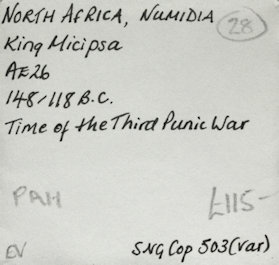 NORTH AFRICA, NUMIDIA 28
King Micipsa
AE26
148/118 B.C.
Time of the Third Punic War
PAH £115-
EV SNG Cop 503(var)